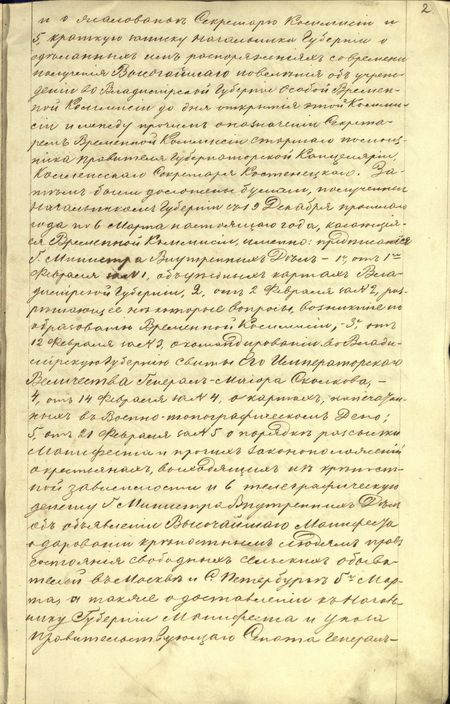 2
и о жалованьи Секретарю Коммисіи и
5, краткую записку Начальника Губерніи о
сдѣланныхъ имъ распоряженіяхъ со времени
полученія Высочайшаго повелѣнія объ учреж-
деніи во Владимірской Губерніи особой Времен-
ной Коммисіи до дня открытія этой Коммис-
сіи и между прочимъ о назначеніи Секрета-
ремъ Временной Коммисіи старшаго помощ-
ника Правителя Губернаторской Канцеляріи,
Коллежскаго Секретаря Костенецкаго. За-
тѣмъ были доложены бумаги, полученныя
Начальникомъ Губерніи съ 19 Декабря прошлаго
года по 6 Марта настоящаго года, касающія-
ся Временной Коммисіи, именно: предписанія
Г. Министра Внутреннихъ Дѣлъ – 1, отъ 1го
Февраля за № 1, объ уѣздныхъ картахъ Вла-
димірской Губерніи, 2, отъ 2 Февраля за № 2, раз-
рѣшающее некоторые вопросы, возникшіе по
образованію Временной Коммисіи, – 3, отъ
12 Февраля за № 3, о командированіи во Влади-
мірскую Губернію свиты Его Императорскаго
Величества Генералъ-Маіора Сколкова, –
4, отъ 14 Февраля за № 4, о картахъ, напечатан-
ныхъ въ Военно-топографическомъ Депо;
5, отъ 21 Февраля за № 5 о порядкѣ разсылки
Манифеста и прочихъ законоположеній
о крестьянахъ, выходящихъ изъ крѣпост-
ной зависимости и 6 телеграфическую
депешу Г. Министра Внутреннихъ Дѣлъ
объ объявленіи Высочайшаго Манифеста
о дарованіи крѣпостнымъ людямъ правъ
состоянія свободныхъ сельскихъ обыва-
телей въ Москвѣ и С. Петербургѣ 5го Мар-
та, а также о доставленіи къ Началь-
нику Губерніи Манифеста и указа
Правительствующаго Сената Генералъ-